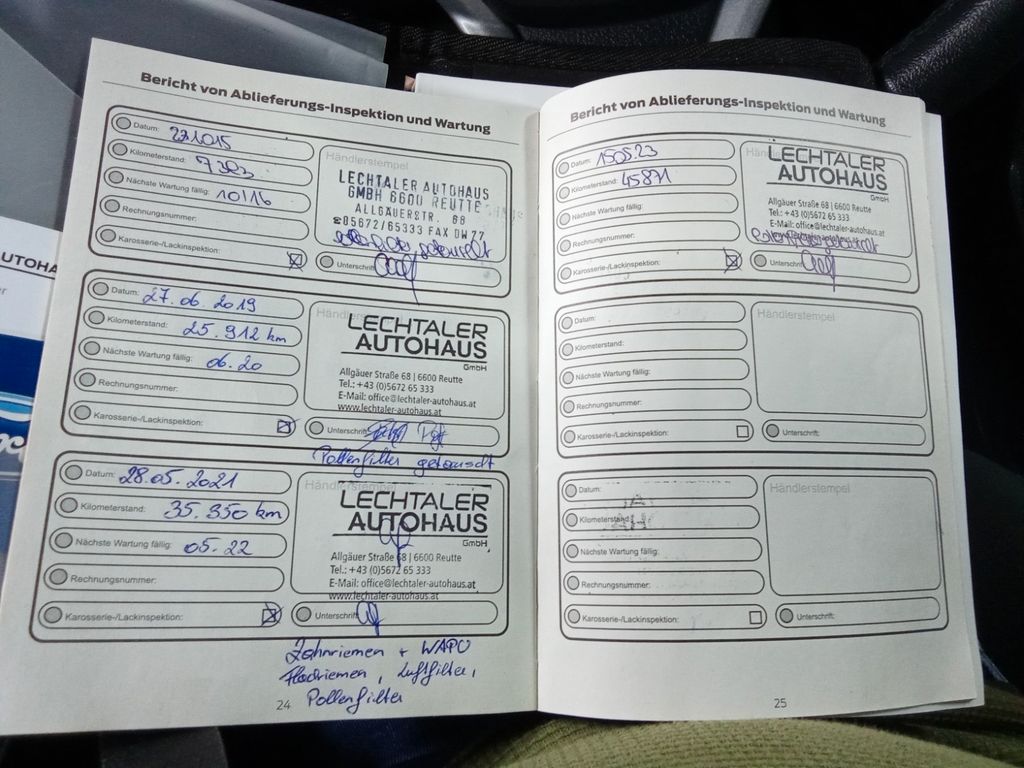 Bericht von Ablieferungs-Inspektion und Wartung
Datum: 271015
Kilometerstand: 7323
Nächste Wartung fällig: 10/16
Rechnungsnummer:
Karosserie-/Lackinspektion:
Händlerstempel
LECHTALER AUTOHAUS
GMBH 6600 REUTTE
ALLGÄUERSTR. 68
☎05672/65333 FAX DW 77
Unterschrift:
Datum: 27.06.2019
Kilometerstand: 25.912 km
Nächste Wartung fällig: 06.20
Rechnungsnummer:
Karosserie-/Lackinspektion:
LECHTALER
AUTOHAUS
GmbH
Allgäuer Straße 68 | 6600 Reutte
Tel.: +43 (0)5672 65 333
E-Mail: office@lechtaler-autohaus.at
www.lechtaler-autohaus.at
Unterschrift:
Pollenfilter getauscht
Datum: 28.05.2021
Kilometerstand: 35.350 km
Nächste Wartung fällig: 05.22
Rechnungsnummer:
Karosserie-/Lackinspektion:
Händlerstempel
LECHTALER
AUTOHAUS
GmbH
Allgäuer Straße 68 | 6600 Reutte
Tel.: +43 (0)5672 65 333
E-Mail: office@lechtaler-autohaus.at
www.lechtaler-autohaus.at
Unterschrift:
Zahnriemen + WAPU
Flachriemen, Luftfilter,
Pollenfilter
24
Bericht von Ablieferungs-Inspektion und Wartung
Datum: 150523
Kilometerstand: 45871
Nächste Wartung fällig:
Rechnungsnummer:
Karosserie-/Lackinspektion:
LECHTALER
AUTOHAUS
GmbH
Allgäuer Straße 68 | 6600 Reutte
Tel.: +43 (0)5672 65 333
E-Mail: office@lechtaler-autohaus.at
Unterschrift:
Datum:
Kilometerstand:
Nächste Wartung fällig:
Rechnungsnummer:
Karosserie-/Lackinspektion:
Händlerstempel
Unterschrift:
Datum:
Kilometerstand:
Nächste Wartung fällig:
Rechnungsnummer:
Karosserie-/Lackinspektion:
Händlerstempel
Unterschrift:
25